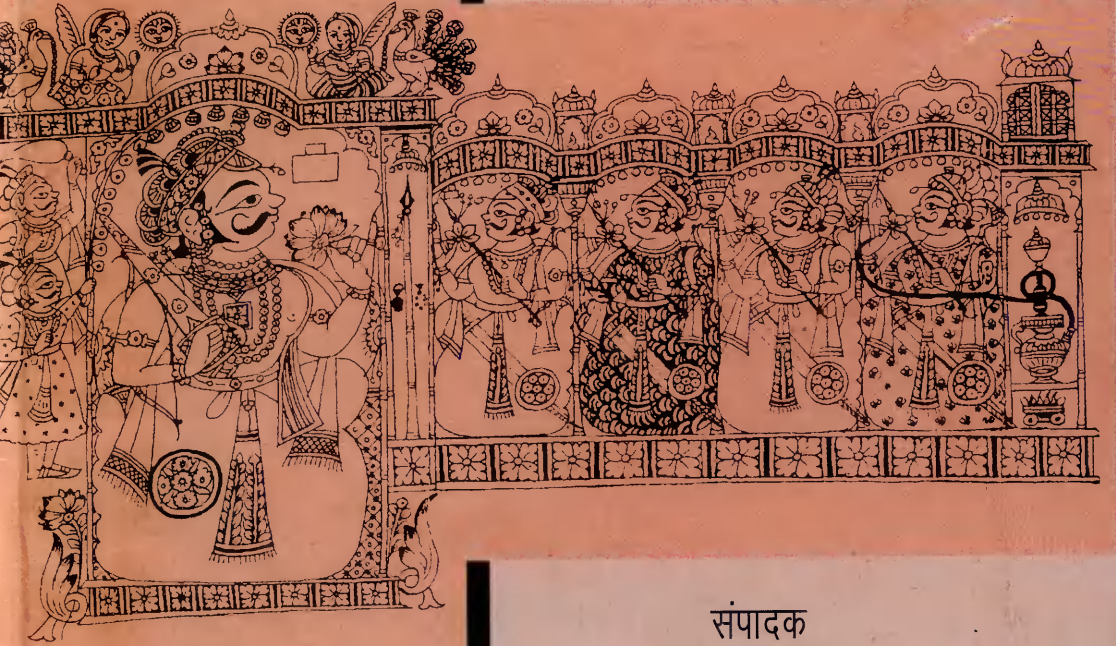 संपादक